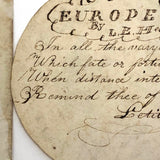 EUROPE
BY
L.E.H
In all the vary
Which fate or fortu
When distance inte
Remind thee of
Leti